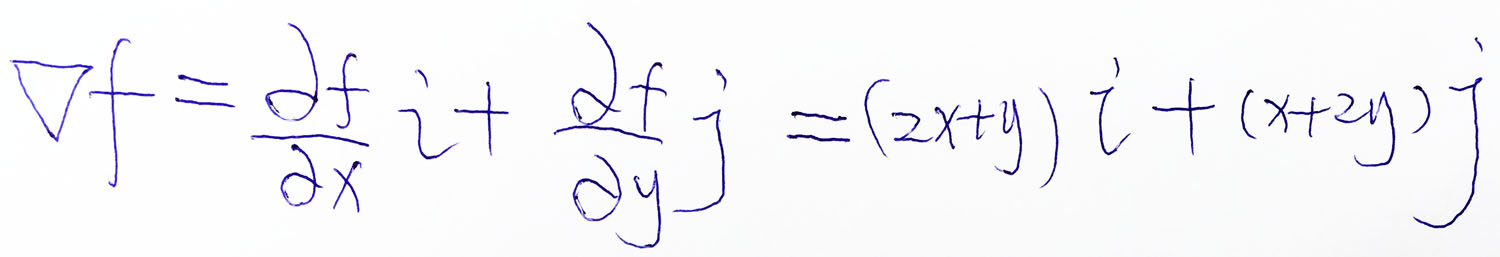 ∇f = ∂f/∂x i + ∂f/∂y j = (2x+y) i + (x+2y) j